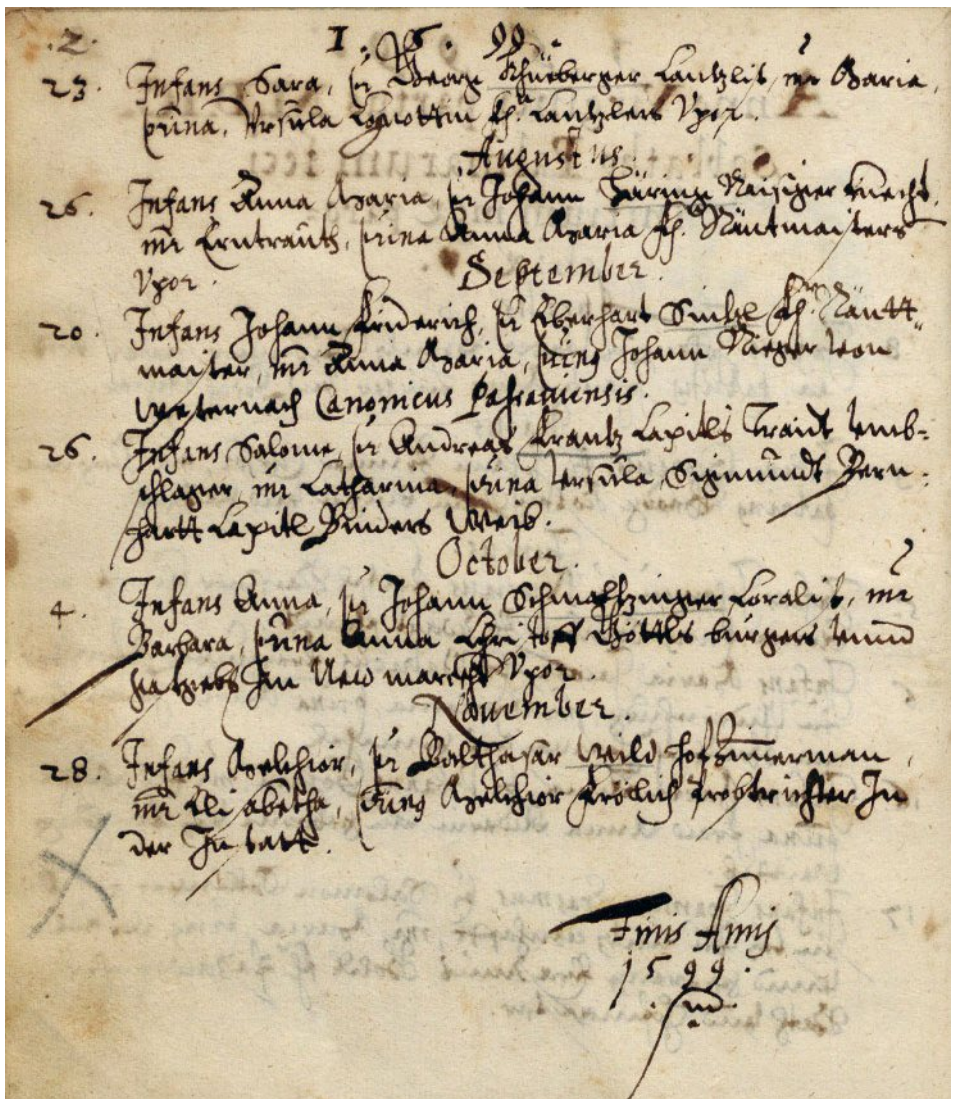 .2. 1. 5. 99.
23. Infans Sara, pr Georg Khueberger Cantzlist, mr Maria,
prina, Ursula fh. Cantzlers Vxor.
Augustus.
26. Infans Anna Maria, pr Johann Häring Raisiger Knecht,
mr Erntrauth, prina Anna Maria fh. Räntmaisters
Vxor.
September.
20. Infans Johann Friderich, pr Eberhart fh. Räntt„
maister, mr Anna Maria, prinus Johann Rieger von
Canonicus
26. Infans Salome, pr Andreas Frantz Capitls Traidt Vmb=
schlager, mr Catharina, prina Vrsula, Sigmundt Bern„
hartt Capitl Binders Weib.
October.
4. Infans Anna, pr Johann Schmaltzinger Coralist, mr
Barbara, prina Anna Christoff Göttls burgers vnnd
Im New marckht Vxor.
November.
28. Infans Melchior, pr Balthasar Wild Hofzimerman,
mr Elisabetha, prinus Melchior Frölich Probstrichter In
der Instatt.
Finis Annis
1599.